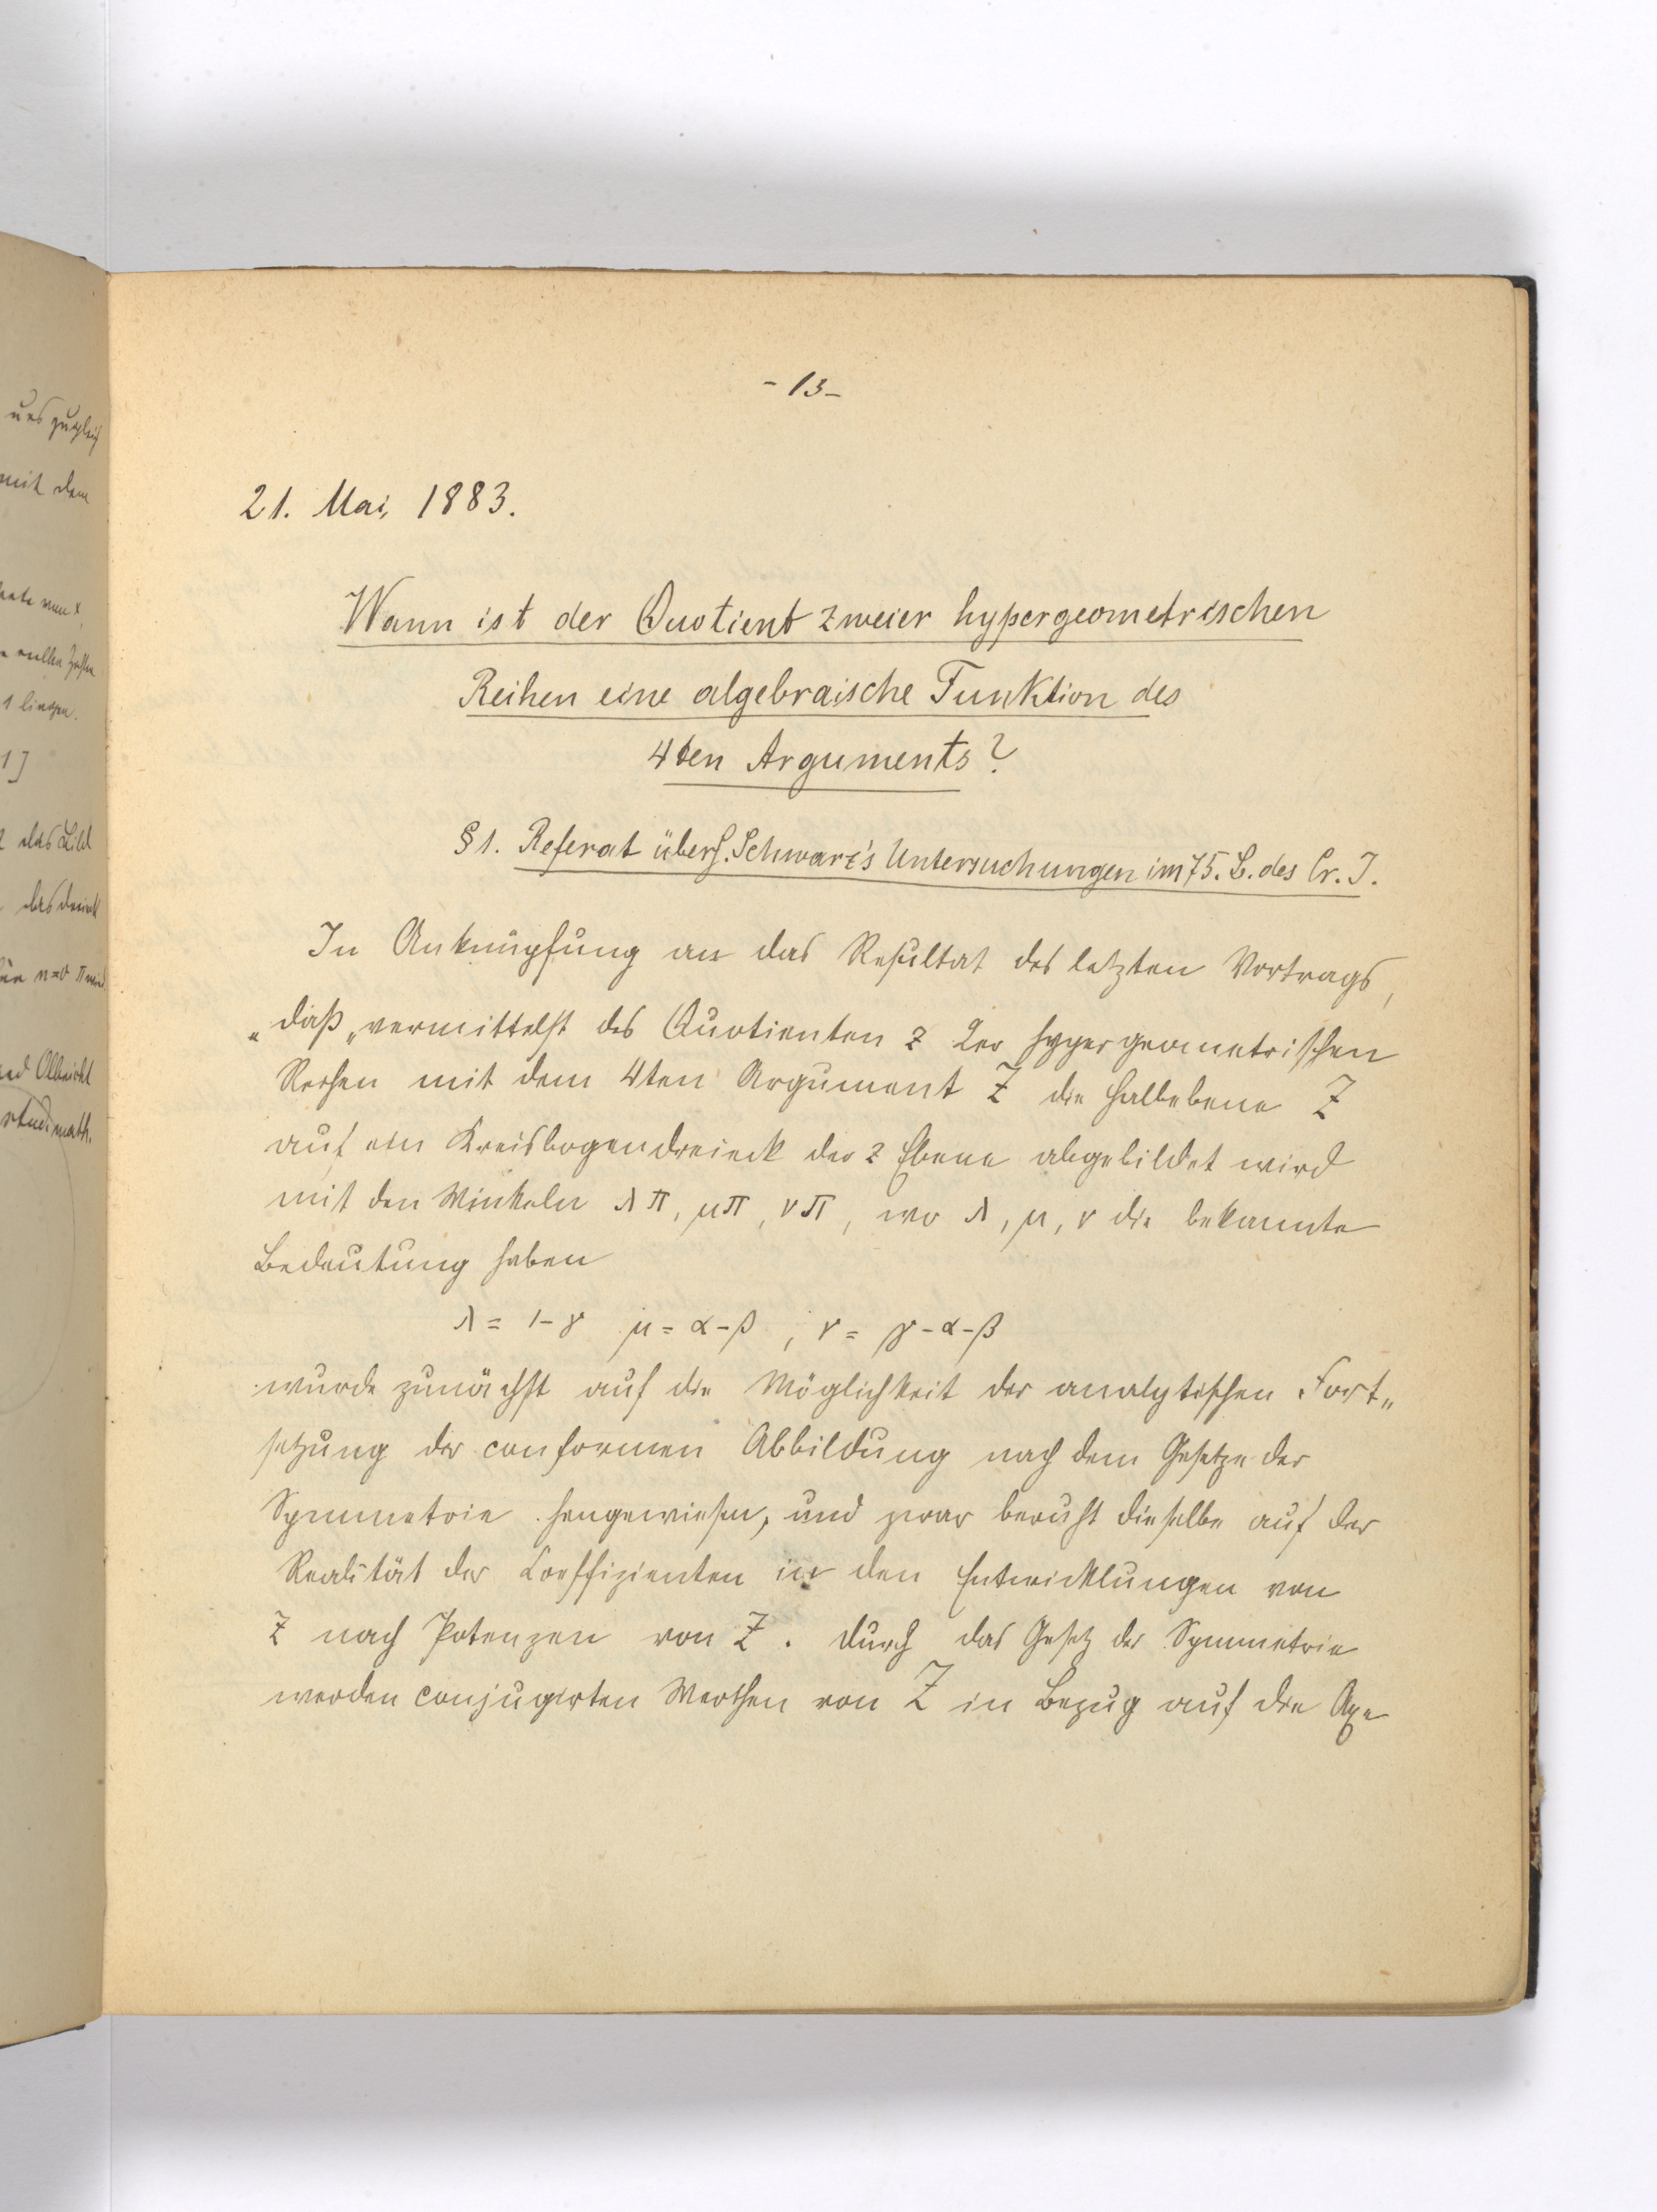 uns zugleich
mit dem
1 liegen.
1]
das Bild
das Dreieck
n=0 π wird
Olbricht
stud. math.
- 13 -
21. Mai, 1883.
Wann ist der Quotient zweier hypergeometrischen
Reihen eine algebraische Funktion des
4ten Arguments?
§ 1. Referat über H. Schwarz's Untersuchungen im 75. B. des Cr. J.
In Anknüpfung an das Resultat des letzten Vortrags,
„daß „vermittelst des Quotienten z 2er hypergeometrischen
Reihen mit dem 4ten Argument Z die Halbebene Z
auf ein Kreisbogendreieck der z Ebene abgebildet wird
mit den Winkeln λπ, μπ, νπ, wo λ, μ, ν die bekannte
Bedeutung haben
λ = 1-γ μ = α-β , ν = γ-α-β
wurde zunächst auf die Möglichkeit der analytischen Fort„
setzung der conformen Abbildung nach dem Gesetze der
Symmetrie hingewiesen, und zwar beruht dieselbe auf der
Realität der Coeffizienten in den Entwicklungen von
z nach Potenzen von Z. Durch das Gesetz der Symmetrie
werden conjugirten Werthen von Z in Bezug auf die Axe